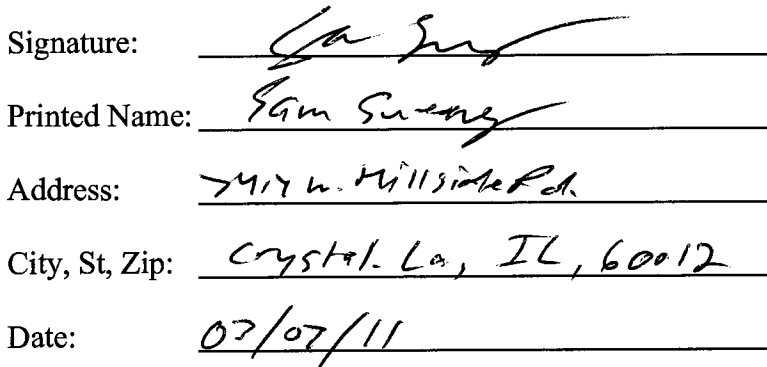 Signature:
Printed Name: Sam Sweeney
Address: W. Hillside Rd.
City, St, Zip: Crystal. La, IL, 60012
Date: 03/07/11